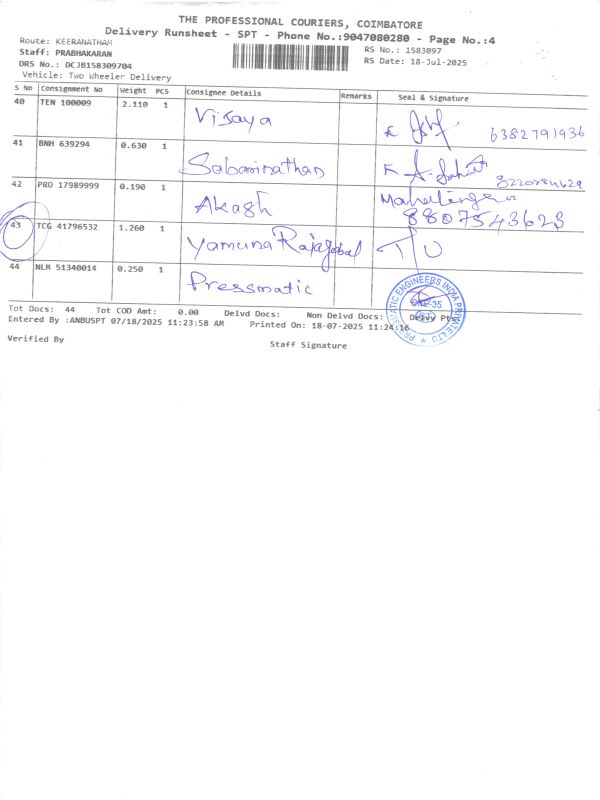 THE PROFESSIONAL COURIERS, COIMBATORE
Delivery Runsheet - SPT - Phone No.:9047080280 - Page No.:4
Route: KEERANATHAM
RS No.: 1583097
Staff: PRABHAKARAN
RS Date: 18-Jul-2025
DRS No.: DCJB158309704
Vehicle: Two Wheeler Delivery
S No Consignment No Weight PCS Consignee Details Remarks Seal & Signature
40 TEN 100009 2.110 1 Vijaya 6382791936
41 BNH 639294 0.630 1 Sabarinathan
42 PRO 17989999 0.190 1 Akash 8807543623
43 TCG 41796532 1.260 1 Yamuna Rajagobal
44 NLM 51340014 0.250 1 Pressmatic
PRESSMATIC ENGINEERS INDIA PRIVATE LTD
Tot Docs: 44 Tot COD Amt: 0.00 Delvd Docs: Non Delvd Docs: Delvy Pts
Entered By :ANBUSPT 07/18/2025 11:23:58 AM Printed On: 18-07-2025 11:24:16
Verified By Staff Signature